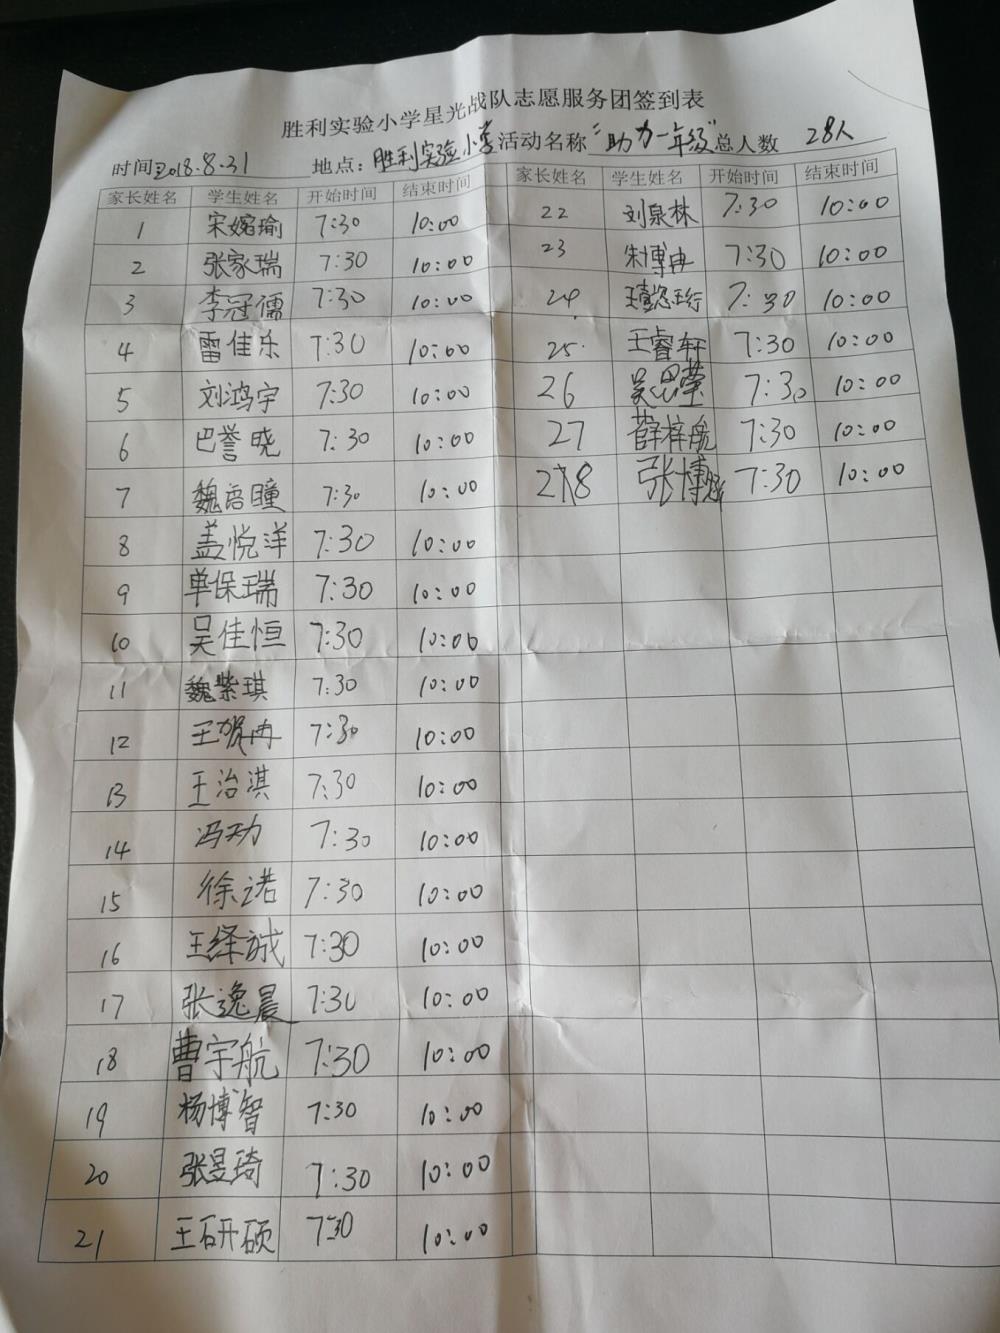 胜利实验小学星光战队志愿服务团签到表
时间2018.8.31 地点:胜利实验小学 活动名称"助力一年级"总人数 28人
家长姓名 学生姓名 开始时间 结束时间 家长姓名 学生姓名 开始时间 结束时间
1 宋嫆瑜 7:30 10:00 22 刘泉林 7:30 10:00
2 张家瑞 7:30 10:00 23 朱博冉 7:30 10:00
3 李冠儒 7:30 10:00 24 7:30 10:00
4 雷佳乐 7:30 10:00 25 王睿轩 7:30 10:00
5 刘鸿宇 7:30 10:00 26 吴思莹 7:30 10:00
6 巴誉晓 7:30 10:00 27 薛梓航 7:30 10:00
7 魏 瞳 7:30 10:00 28 张博 7:30 10:00
8 盖悦洋 7:30 10:00
9 单保瑞 7:30 10:00
10 吴佳恒 7:30 10:00
11 魏紫琪 7:30 10:00
12 王贺冉 7:30 10:00
13 王治淇 7:30 10:00
14 冯天功 7:30 10:00
15 徐诺 7:30 10:00
16 王绎诚 7:30 10:00
17 张逸晨 7:30 10:00
18 曹宇航 7:30 10:00
19 杨博智 7:30 10:00
20 张昱琦 7:30 10:00
21 王研硕 7:30 10:00